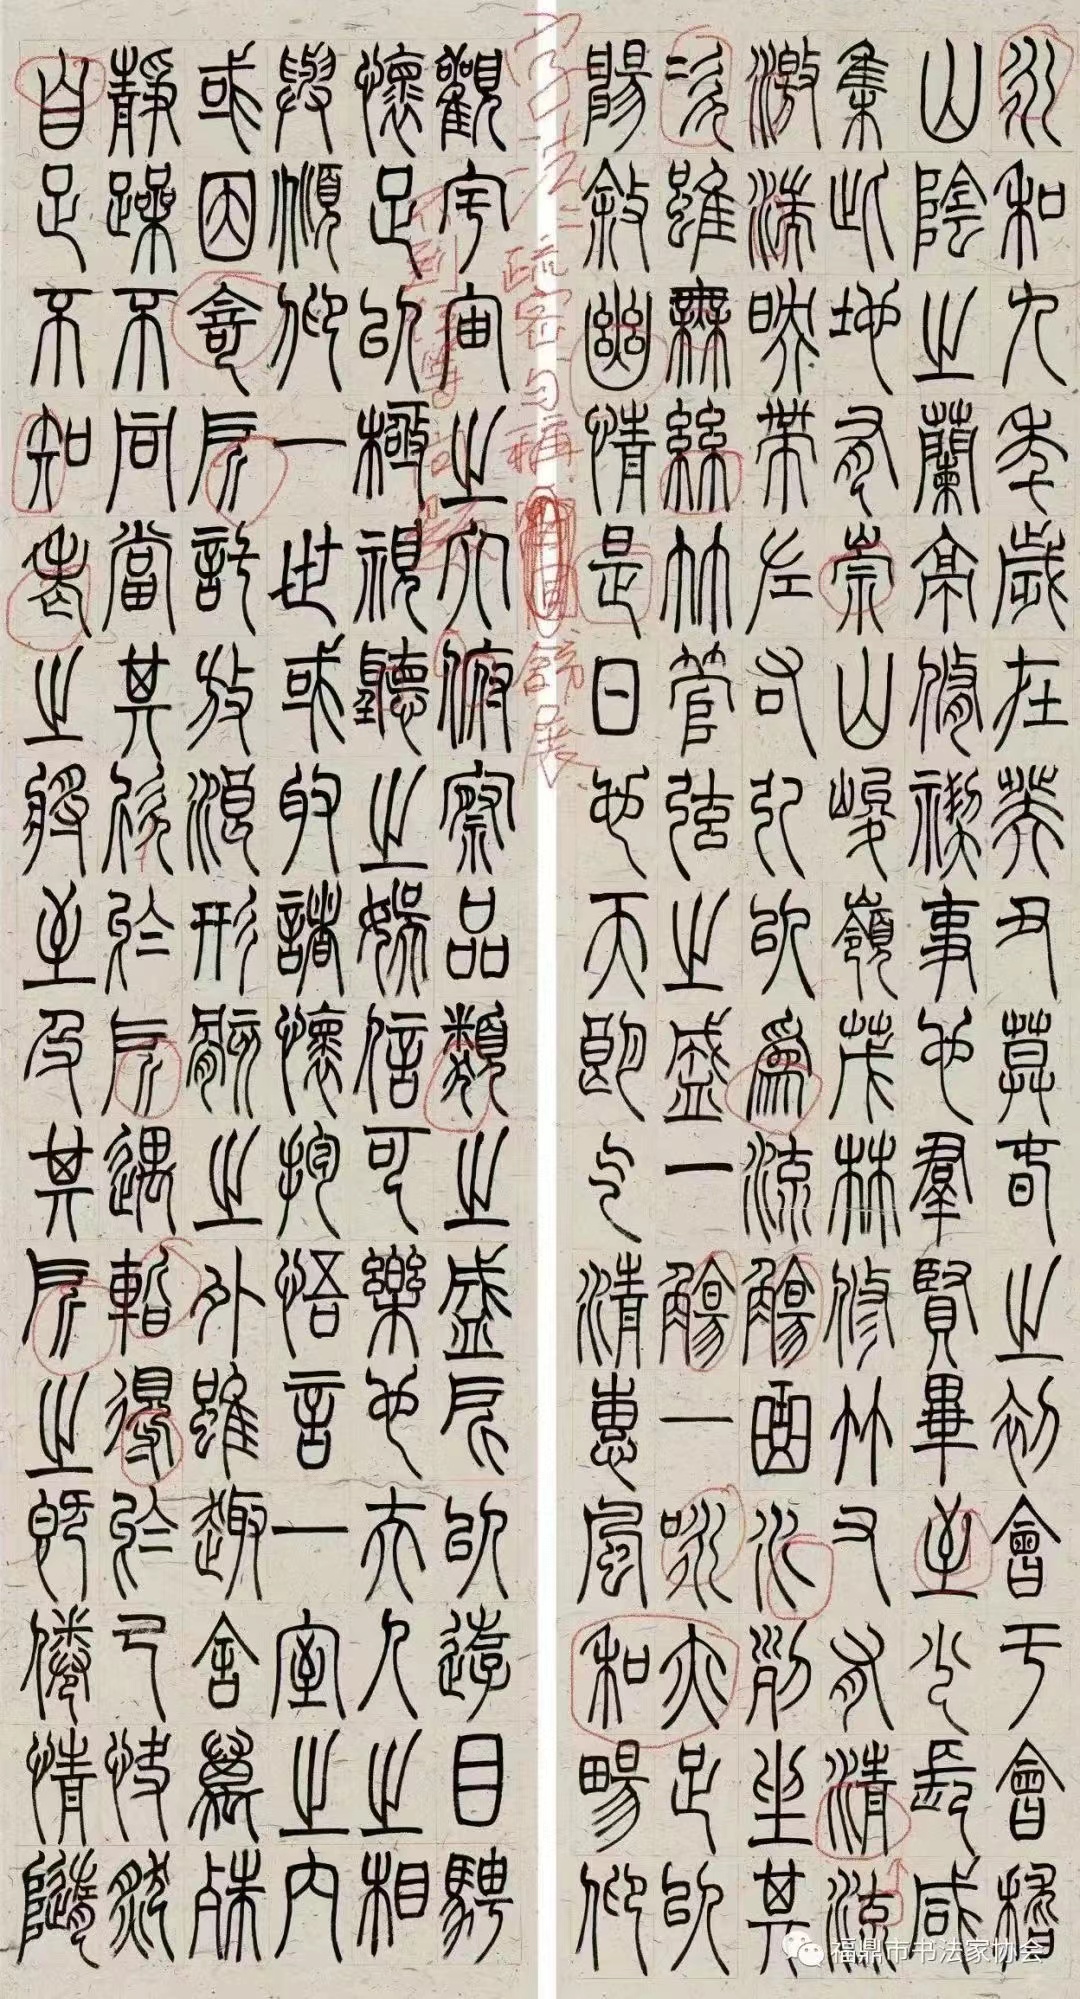 永和九年歲在癸丑莫春之初會于會稽
山陰之蘭亭脩禊事也羣賢畢至少長咸
集此地有崇山峻嶺茂林修竹又有清流
激湍映帶左右引以為流觴曲水列坐其
次雖無絲竹管弦之盛一觴一詠亦足以
暢敘幽情是日也天朗气清惠風和暢仰
觀宇宙之大俯察品類之盛所以遊目騁
懷足以極視聽之娛信可樂也夫人之相
與順仰一世或取諸懷抱悟言一室之內
或因寄所託放浪形骸之外雖趣舍萬殊
靜躁不同當其欣於所遇暫得於己快然
自足不知老之將至及其所之既倦情隨
字法：疏密匀稱 舒展
福鼎市书法家协会